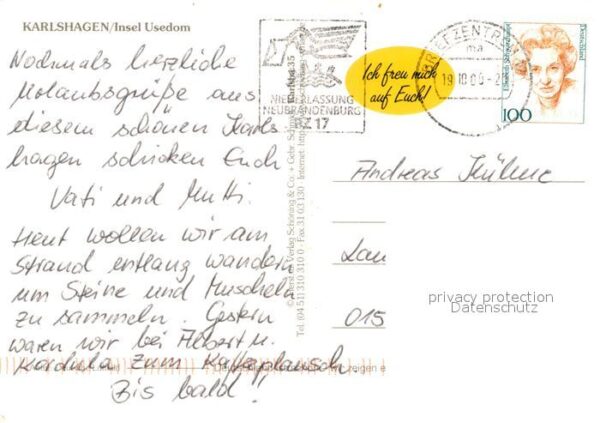 KARLSHAGEN/Insel Usedom
Nochmals herzliche
Urlaubsgrüße aus
diesem schönen Karls-
hagen schicken Euch
Vati und Mutti.
Heut wollen wir am
Strand entlang wandern
um Steine und Muscheln
zu sammeln. Gestern
waren wir bei Hebert u.
Kordula zum Kaffeeplausch
Bis bald!
NIEDERLASSUNG
NEUBRANDENBURG
BZ 17
Ich freu mich
auf Euch!
BRIEFZENTRUM
ma
19.10.00-2
Deutschland
100
Andreas Kühne
Lau
015
privacy protection
Datenschutz
Verlag Schöning & Co. + Gebr. Schmidt
Tel. (04 51) 310 310 0 · Fax 31 03 130 · Internet: http